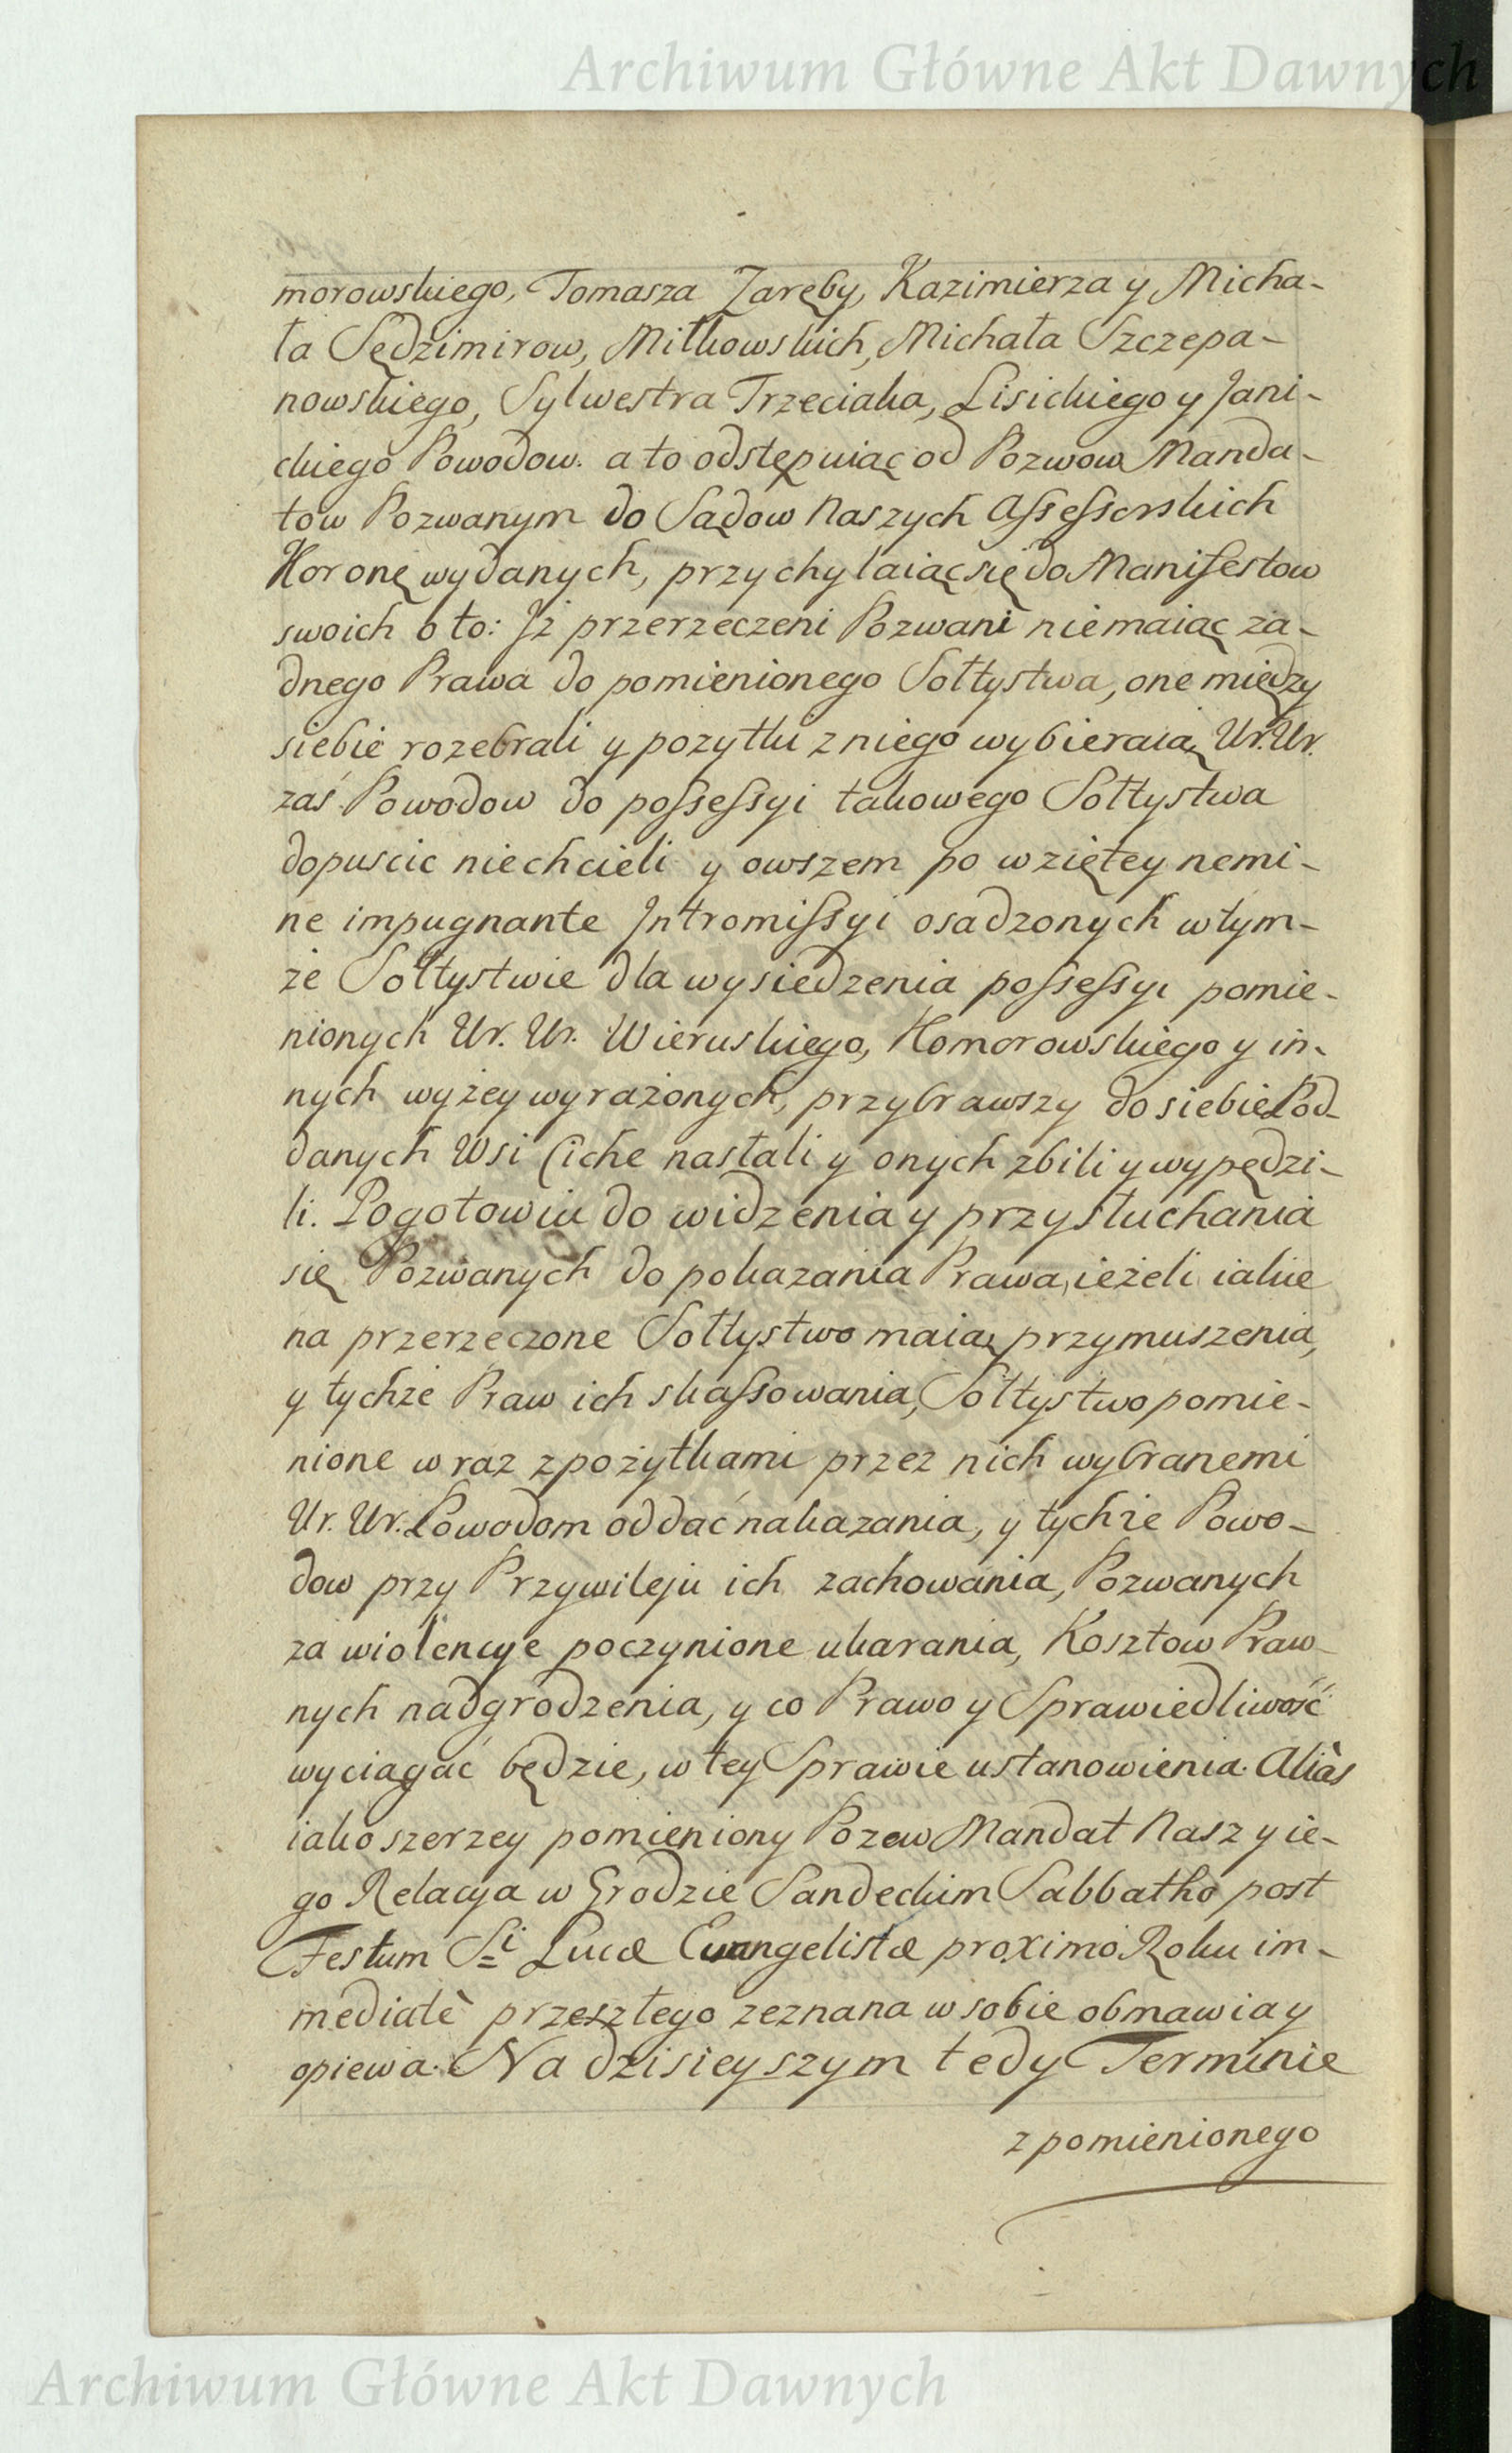 Archiwum Główne Akt Dawnych
morowskiego, Tomasza Zaręby, Kazimierza y Micha-
ła Sędzimirow, Miłkowskich, Michała Szczepa-
nowskiego, Sylwestra Trzeciaka, Lisickiego y Jani-
ckiego Powodow. a to odstępuiąc od Pozwow Manda-
tow Pozwanym do Sądow Naszych Assessorskich
Koronę wydanych, przychylaiąc się do Manifestow
swoich o to: Jż przerzeczeni Pozwani niemaiąc ża-
dnego Prawa do pomienionego Sołtystwa, one między
siebie rozebrali y pozytki z niego wybieraią Ur. Ur.
zaś Powodow do possessyi takowego Sołtystwa
dopuscic niechcieli y owszem po wziętey nemi-
ne impugnante Jntromissyi osadzonych w tym-
że Sołtystwie dla wysiedzenia possessyi pomie-
nionych Ur. Ur. Wieruskiego, Komorowskiego y in-
nych wyżey wyrażonych, przybrawszy do siebie Pod-
danych Wsi Ciche nastali y onych zbili y wypędzi-
li. Pogotowiu do widzenia y przysłuchania
się Pozwanych do pokazania Prawa, ieżeli iakie
na przerzeczone Sołtystwo maią przymuszenia,
y tychże Praw ich skassowania, Sołtystwo pomie-
nione wraz z pożytkami przez nich wybranemi
Ur. Ur. Powodom oddać nakazania, y tychże Powo-
dow przy Przywileju ich zachowania, Pozwanych
za wiolencye poczynione ukarania, Kosztow Praw-
nych nadgrodzenia, y co Prawo y Sprawiedliwość
wyciągać będzie, w tey Sprawie ustanowienia. Aliàs
iako szerzey pomieniony Pozew Mandat Nasz y ie-
go Relacya w Grodzie Sandeckim Sabbatho post
Festum Si Lucæ Evangelistæ proximo Roku im-
mediatè przeszłego zeznana w sobie obmawia y
opiewa. Na dzisieyszym tedy Terminie
z pomienionego
Archiwum Główne Akt Dawnych